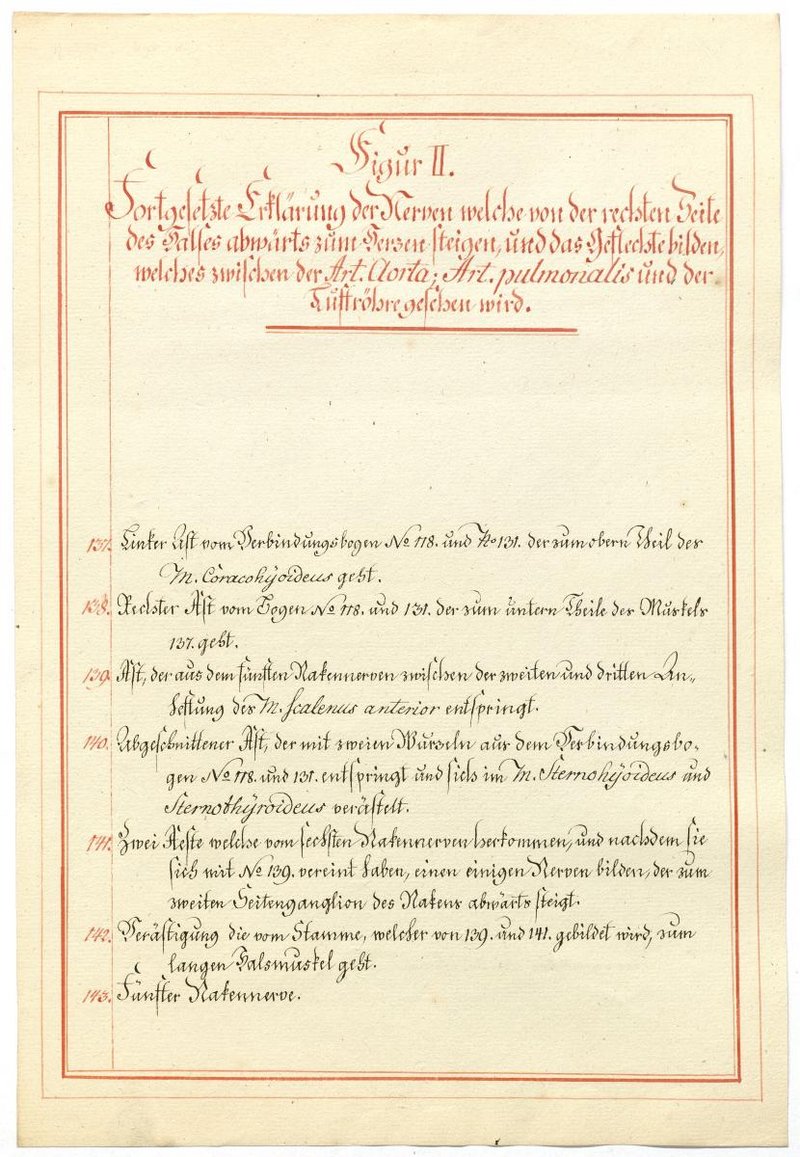 Figur II.
Fortgesetzte Erklärung der Nerven welche von der rechten Seite
des Halses abwärts zum Herzen steigen, und das Geflechte bilden,
welches zwischen der Art. Aorta; Art. pulmonalis und der
Luftröhre gesehen wird.
137. Linker Ast vom Verbindungsbogen No 118. und No 131. der zum obern Theil des
M. Coracohÿoideus geht.
138. Rechter Ast vom Bogen No 118. und 131. der zum untern Theile des Muskels
137. geht.
139. Ast, der aus dem fünften Nakennerven zwischen der zweiten und dritten An„
heftung des M. Scalenus anterior entspringt.
140. Abgeschnittener Ast, der mit zweien Wurzeln aus dem Verbindungsbo„
gen No 118. und 131. entspringt und sich im M. Sternohÿoideus und
Sternothÿroideus verästelt.
141. Zwei Aeste welche vom sechsten Nakennerven herkommen, und nachdem sie
sich mit No 139. vereint haben, einen einigen Nerven bilden, der zum
zweiten Seitenganglion des Nakens abwärts steigt.
142. Verästigung die vom Stamme, welcher von 139. und 141. gebildet wird, zum
langen Halsmuskel geht.
143. Fünfter Nakennerve.